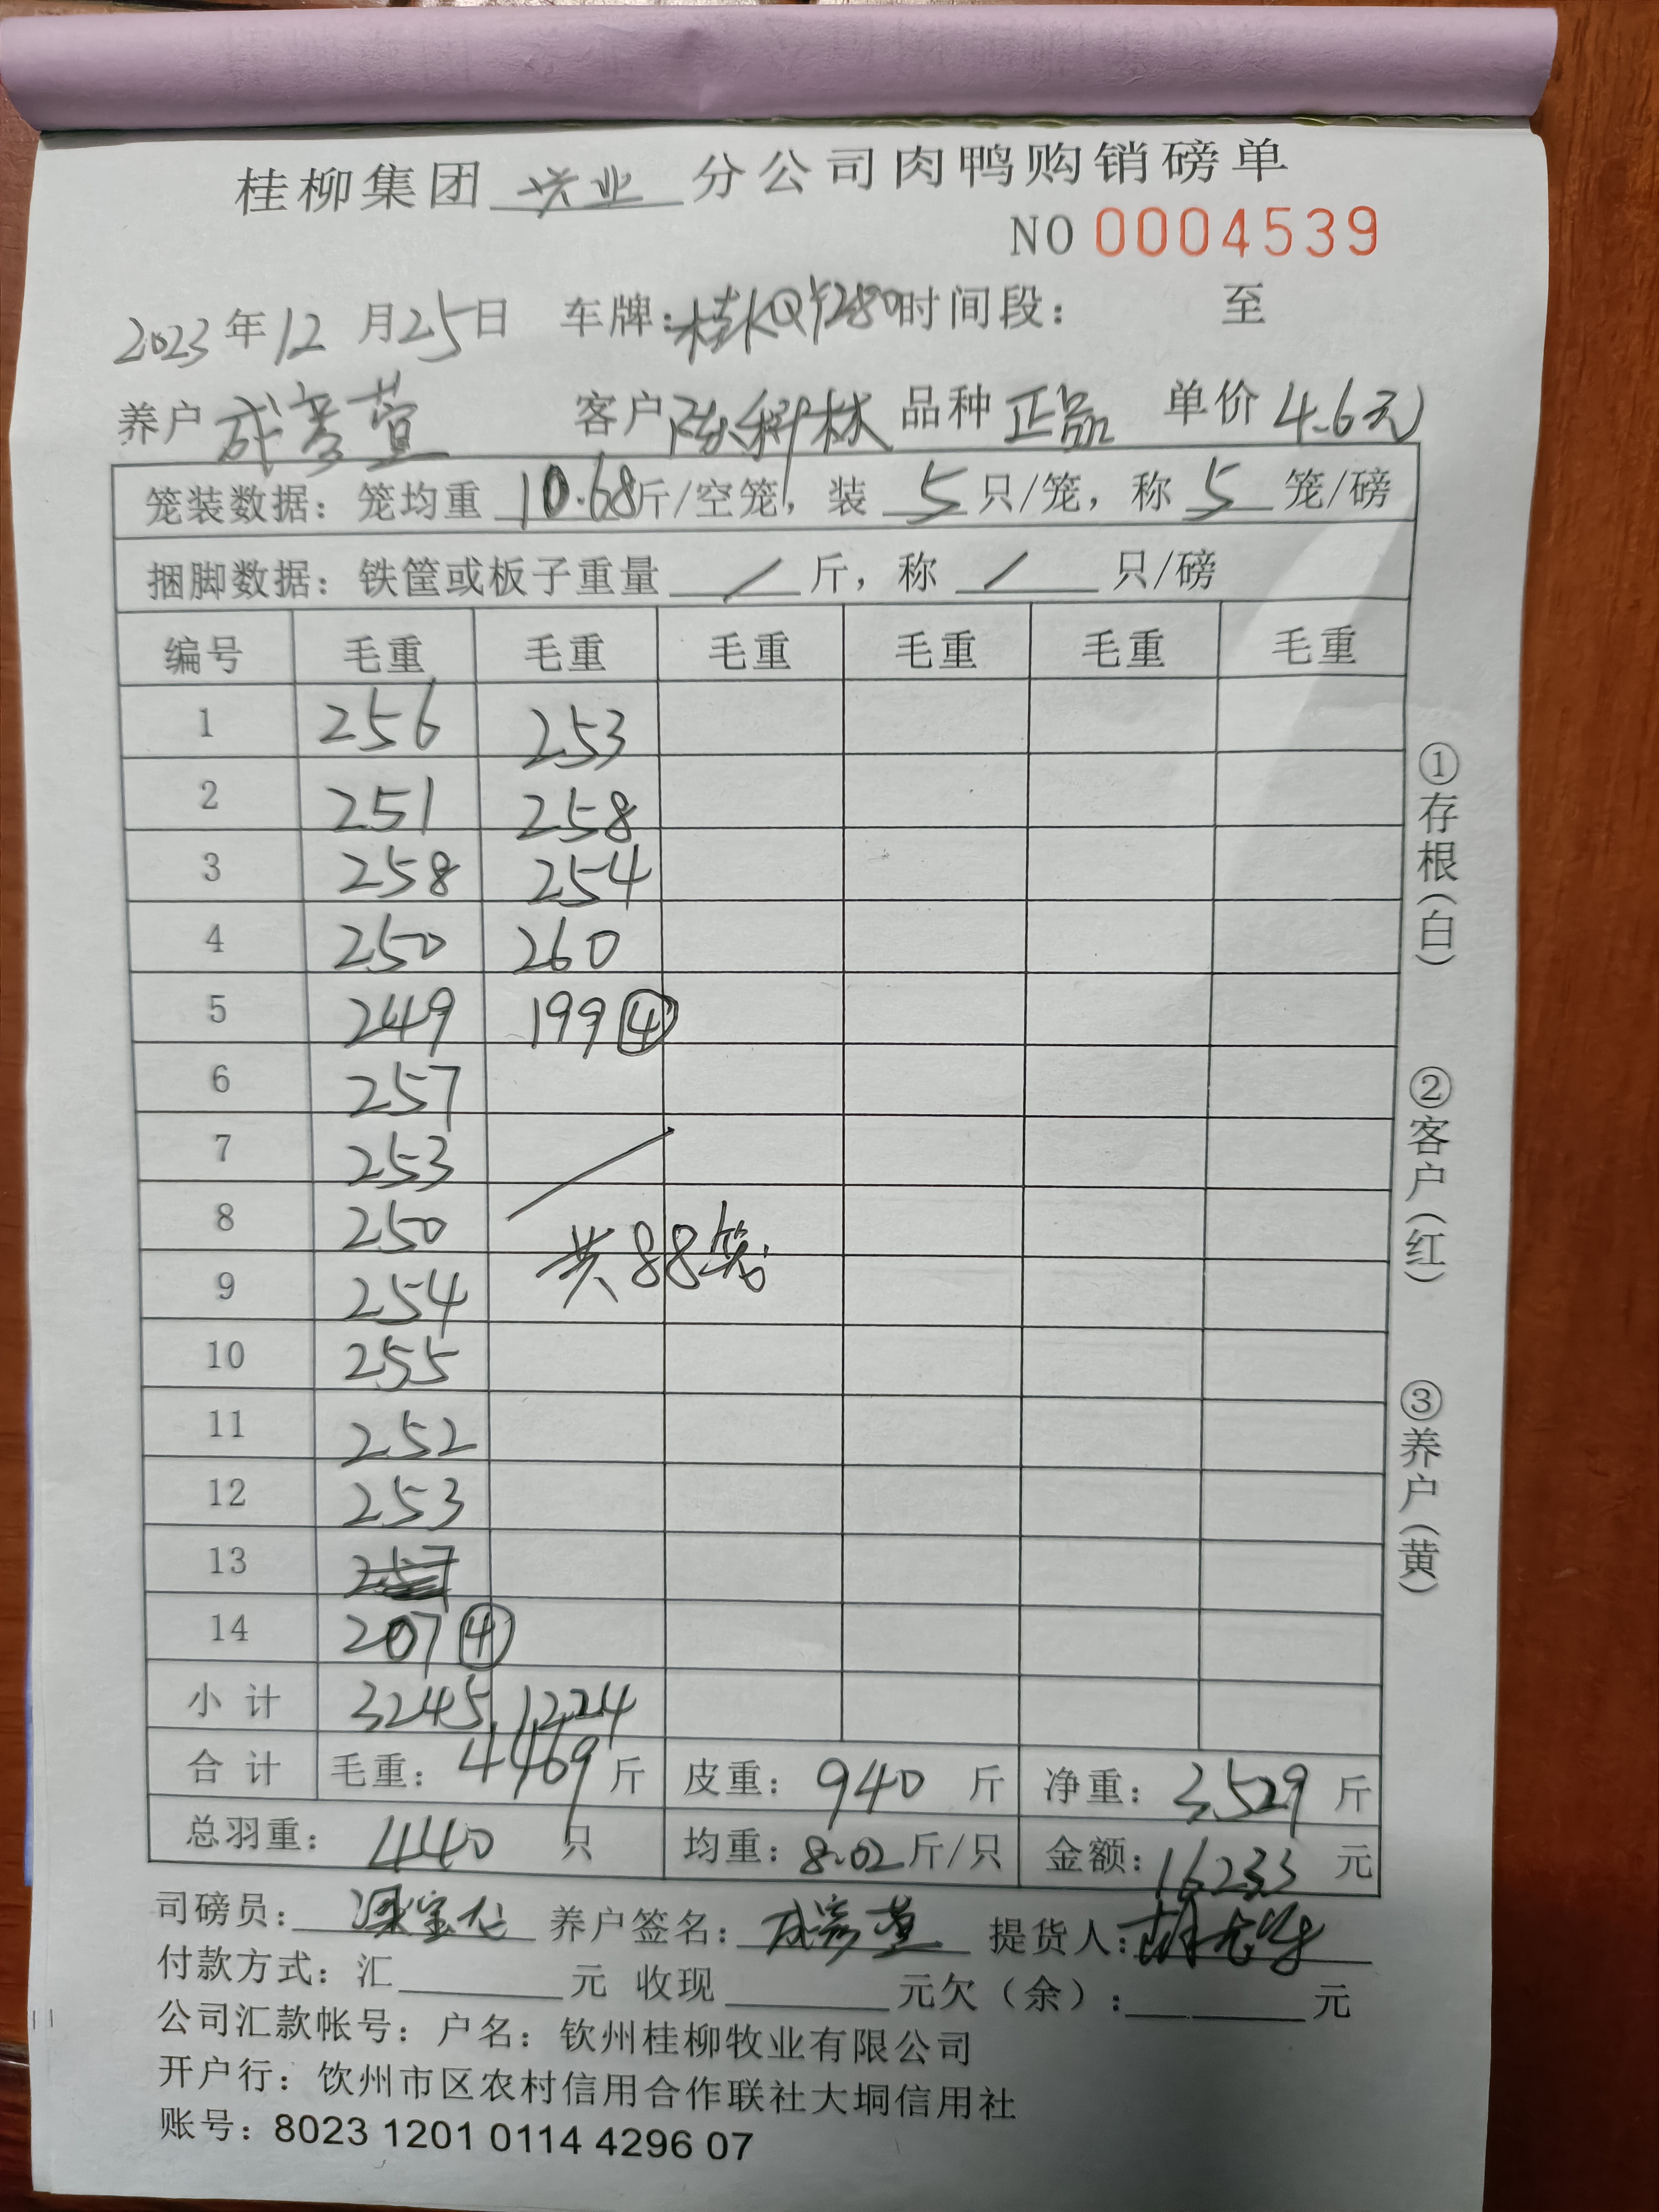 桂柳集团 兴业 分公司肉鸭购销磅单
NO 0004539
2023年12月25日 车牌:桂KQY280时间段: 至
养户 成彦萱 客户 陈科林 品种 正品 单价 4.6元
笼装数据:笼均重 10.68斤/空笼,装 5 只/笼,称 5 笼/磅
捆脚数据:铁筐或板子重量 / 斤,称 / 只/磅
编号 毛重 毛重 毛重 毛重 毛重 毛重
1 256 253
2 251 258
3 258 254
4 250 260
5 249 199 ④
6 257
7 253
8 250
共88笼
9 254
10 255
11 252
12 253
13
14 207 ④
小 计 3245 1224
合 计 毛重:4469 斤 皮重:940 斤 净重:3529 斤
总羽重:440 只 均重:8.02斤/只 金额:16233 元
司磅员: 养户签名:成彦萱 提货人:
付款方式:汇 元 收现 元欠(余): 元
公司汇款帐号:户名:钦州桂柳牧业有限公司
开户行:钦州市区农村信用合作联社大垌信用社
账号:8023 1201 0114 4296 07
①存根(白)
②客户(红)
③养户(黄)